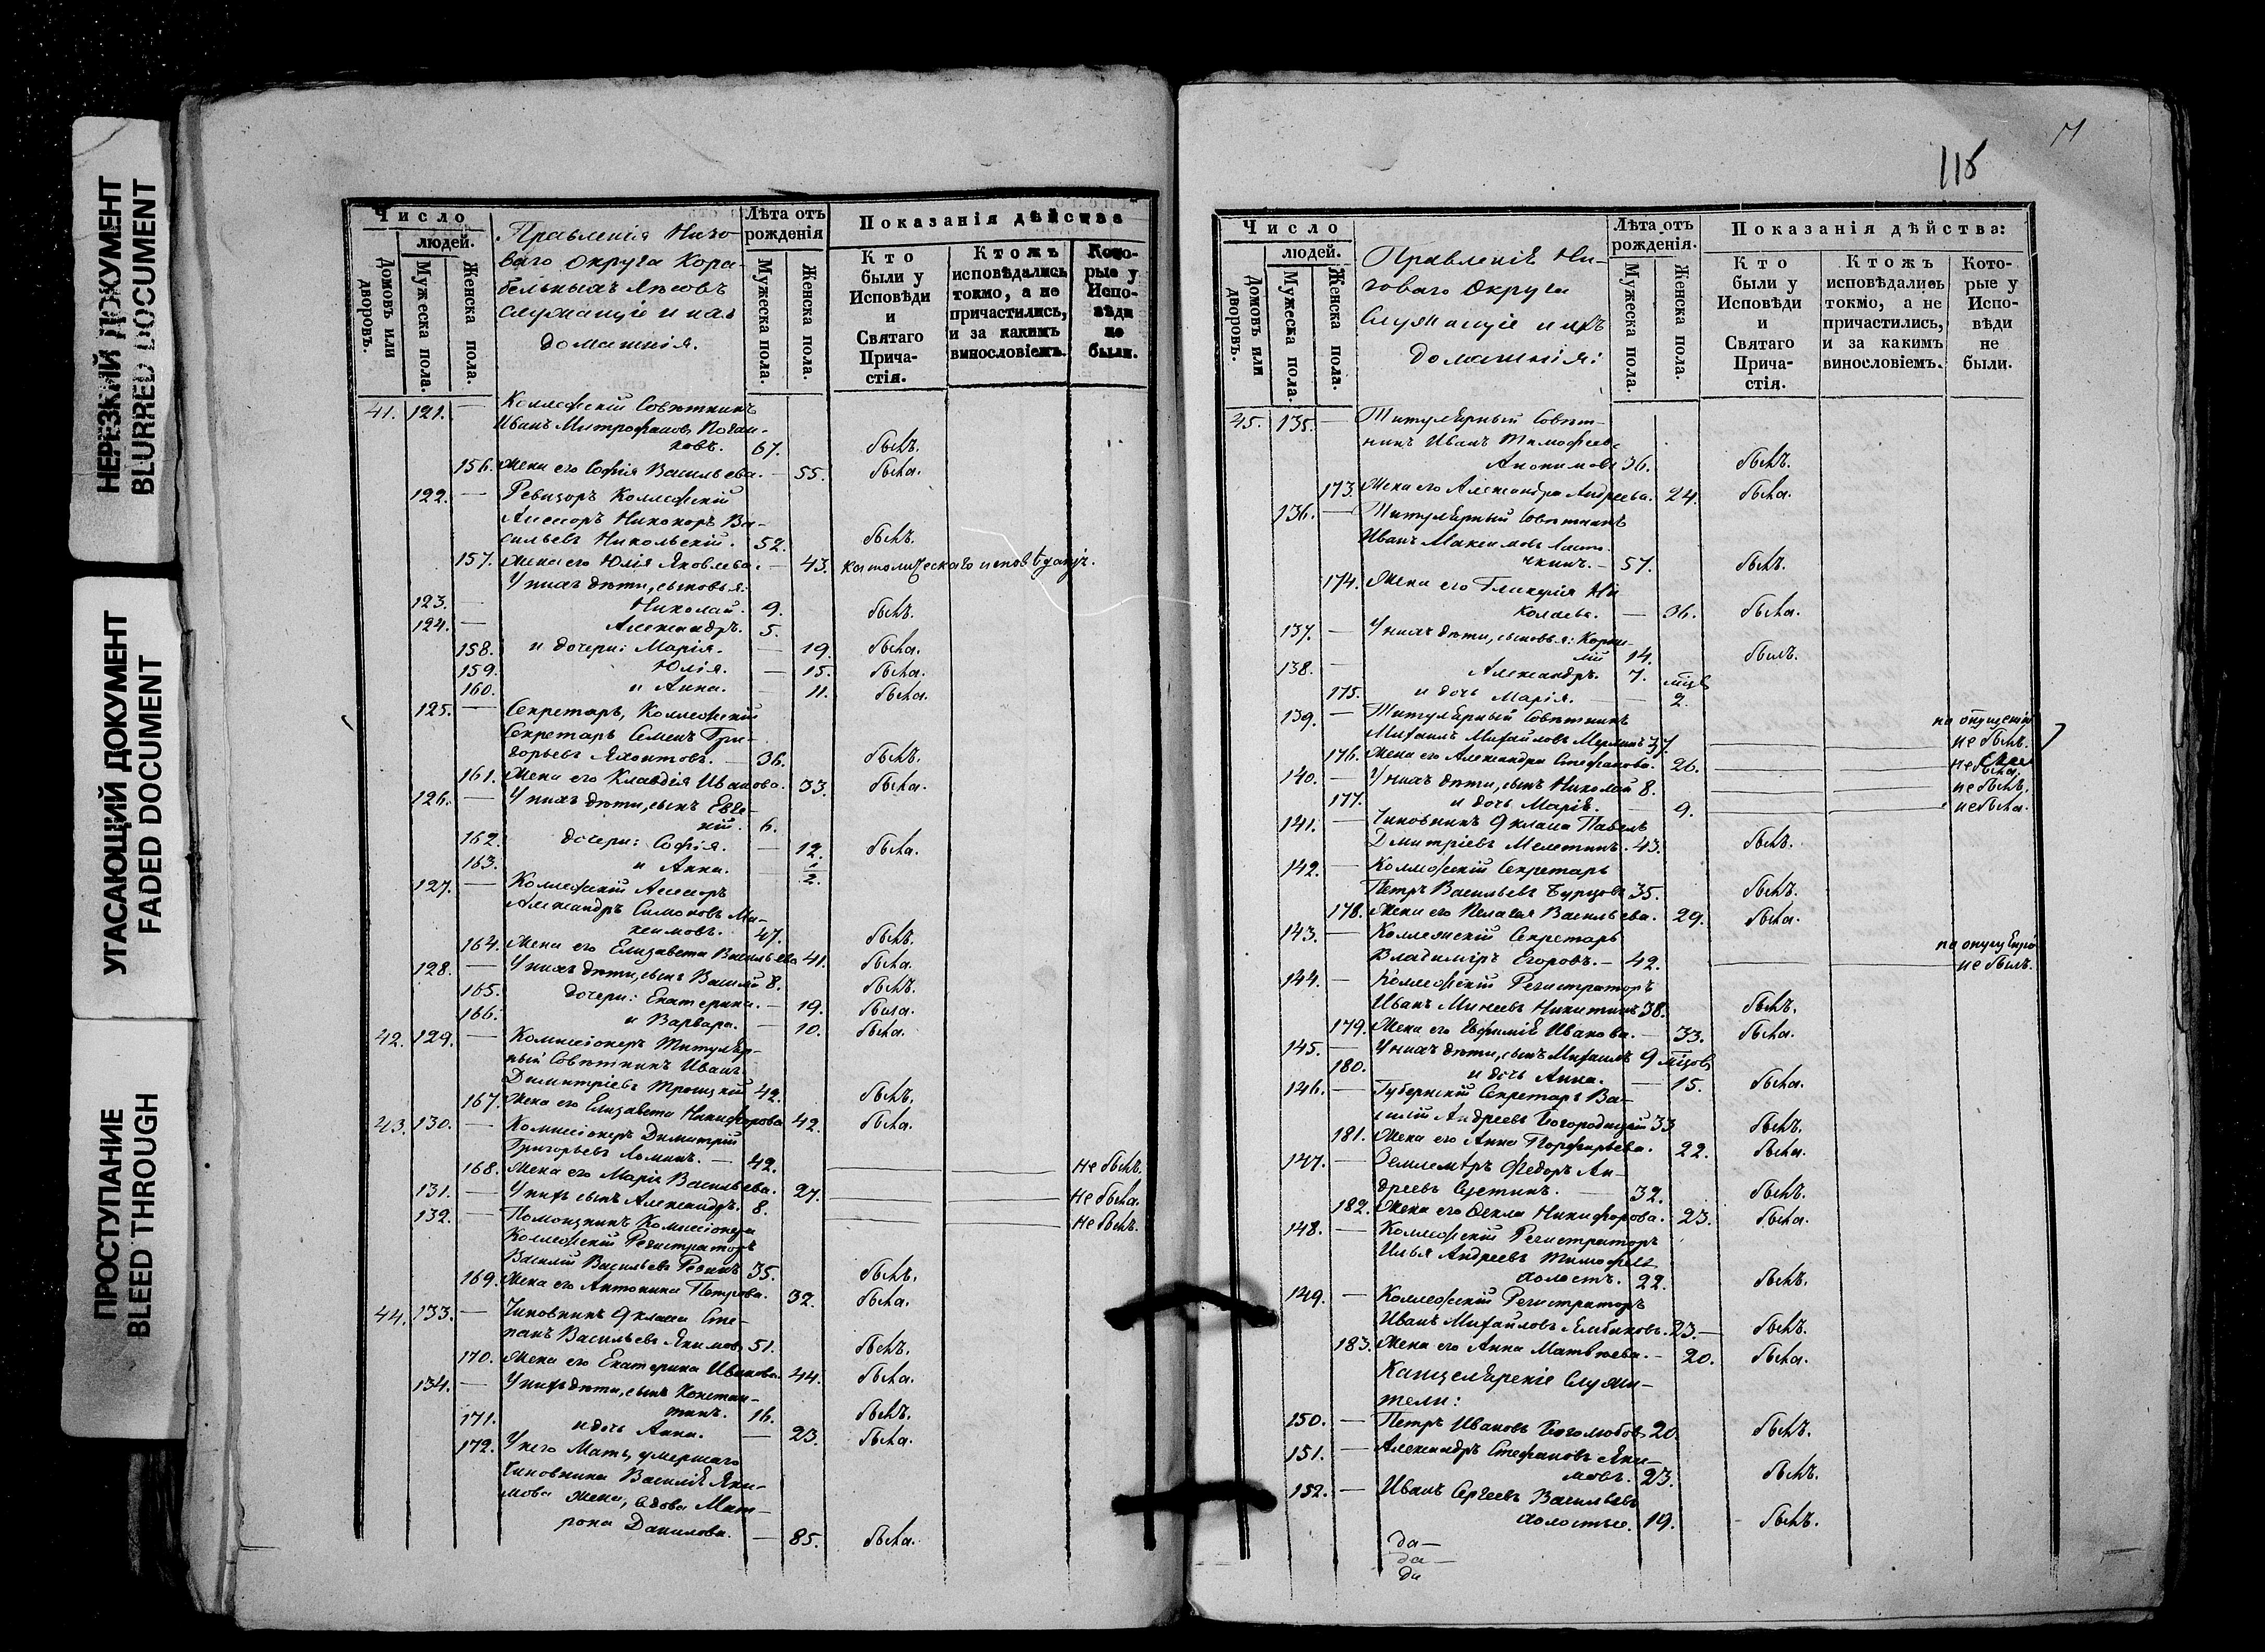 НЕРЕЗКИЙ ДОКУМЕНТ
BLURRED DOCUMENT
УГАСАЮЩИЙ ДОКУМЕНТ
FADED DOCUMENT
ПРОСТУПАНИЕ
BLEED THROUGH
Число
людей.
Домовъ или дворовъ.
Мужеска пола.
Женска пола.
Правленія Низо-
ваго округа Кора-
бельныхъ лѣсовъ
служащіе и ихъ
домашнія.
Лѣта отъ рожденія
Мужеска пола.
Женска пола.
Показанія дѣйства
Кто были у Исповѣди и Святаго Причастія.
Ктожъ исповѣдались токмо, а не причастились, и за какимъ винословіемъ.
Которые у Исповѣди не были.
41. 121. — Коллежскій Совѣтникъ
Иванъ Митрофановъ
ховъ. 67. былъ.
156. Жена его Софія Васильева. — 55. была.
122. — Ревизоръ Коллежскій
Ассесоръ Никоноръ Ва-
сильевъ Никольскій. 52. былъ.
157. Жена его Юлія Яковлева. — 43. католическаго исповѣданія.
У нихъ дѣти, сыновья:
123. — Николай. 9. былъ.
124. — Александръ. 5.
158. и дочери: Марія. — 19. была.
159. Юлія. — 15. была.
160. и Анна. — 11. была.
125. — Секретарь, Коллежскій
Секретарь Семенъ Гри-
горьевъ Яхонтовъ. — 36. былъ.
161. Жена его Клавдія Иванова. 33. была.
126. — У нихъ дѣти, сынъ Евге-
ній. 6.
162. дочери: Софія. — 12. была.
163. и Анна. 1/2.
127. — Коллежскій Ассесоръ
Александръ Симоновъ Ма-
ксимовъ. 47. былъ.
164. Жена его Елизавета Васильева 41. была.
128. — У нихъ дѣти, сынъ Василій 8. былъ.
165. дочери: Екатерина. — 19. была.
166. и Варвара. — 10. была.
42. 129. — Коммиссіонеръ Титуляр-
ный Совѣтникъ Иванъ
Димитріевъ Троицкій 42. былъ.
167. Жена его Елизавета Никифорова 42. была.
43. 130. — Коммиссіонеръ Димитрій
Григорьевъ Ломинъ. — 42. не былъ.
168. Жена его Марія Васильева. 27. не была.
131. — У нихъ сынъ Александръ. 8. не былъ.
132. — Помощникъ Коммиссіонера
Коллежскій Регистраторъ
Василій Васильевъ Резинъ 35. былъ.
169. Жена его Антонина Петрова. 32. была.
44. 133. — Чиновникъ 9 класса Сте-
панъ Васильевъ Якимовъ 51. былъ.
170. Жена его Екатерина Иванова. 44. была.
134. — У нихъ дѣти, сынъ Констан-
тинъ. 16. былъ.
171. и дочь Анна. — 23. была.
172. У него Мать, умершаго
Чиновника Василія Яки-
мова жена, вдова Мат-
рона Данилова. — 85. была.
71
118
Число
людей.
Домовъ или дворовъ.
Мужеска пола.
Женска пола.
Правленія Ни-
зоваго округа
служащіе и ихъ
домашнія:
Лѣта отъ рожденія.
Мужеска пола.
Женска пола.
Показанія дѣйства:
Кто были у Исповѣди и Святаго Причастія.
Ктожъ исповѣдались токмо, а не причастились, и за какимъ винословіемъ.
Которые у Исповѣди не были.
45. 135. — Титулярный Совѣт-
никъ Иванъ Тимофеевъ
Анонимовъ 36. былъ.
173. Жена его Александра Андреева. 24. была.
136. — Титулярный Совѣтникъ
Иванъ Максимовъ Ласто-
чкинъ. — 57. былъ.
174. Жена его Гликерія Ни-
колаева. — 36. была.
137. — У нихъ дѣти, сыновья: Корни-
лій 14. былъ.
138. — Александръ. 7.
175. и дочь Марія. — мцв 2.
139. — Титулярный Совѣтникъ по опущенію
Михаилъ Михайловъ 37. не былъ.
176. Жена его Александра Стефанова. 26. не была.
140. — У нихъ дѣти, сынъ Николай 8. не былъ.
177. и дочь Марія. — 9. не была.
141. — Чиновникъ 9 класса Павелъ
Димитріевъ Мелетинъ. 43. былъ.
142. — Коллежскій Секретарь
Петръ Васильевъ Бурцовъ 35. былъ.
178. Жена его Пелагея Васильева. 29. была.
143. — Коллежскій Секретарь по опущенію
Владиміръ Егоровъ. — 42. не былъ.
144. — Коллежскій Регистраторъ
Иванъ Минеевъ Никитинъ 38. былъ.
179. Жена его Евфимія Иванова. — 33. была.
145. — У нихъ дѣти, сынъ Михаилъ 9 мцовъ
180. и дочь Анна. — 15. была.
146. — Губернскій Секретарь Ва-
силій Андреевъ Богородицкій 33 былъ.
181. Жена его Анна Порфирьева. 22. была.
147. — Землемѣръ Федоръ Ан-
дреевъ Сѣтинъ. — 32. былъ.
182. Жена его Фекла Никифорова. 23. была.
148. — Коллежскій Регистраторъ
Илья Андреевъ Тимофеев
холостъ. 22. былъ.
149. — Коллежскій Регистраторъ
Иванъ Михайловъ Ямбиковъ. 23. — былъ.
183. Жена его Анна Матвѣева. — 20. была.
Канцелярскіе служи-
тели:
150. — Петръ Ивановъ Боголюбовъ 20. былъ.
151. — Александръ Стефановъ Яки-
мовъ. 23. былъ.
152. — Иванъ Сергеевъ Васильевъ
холостые. 19. былъ.
да —
да —
да